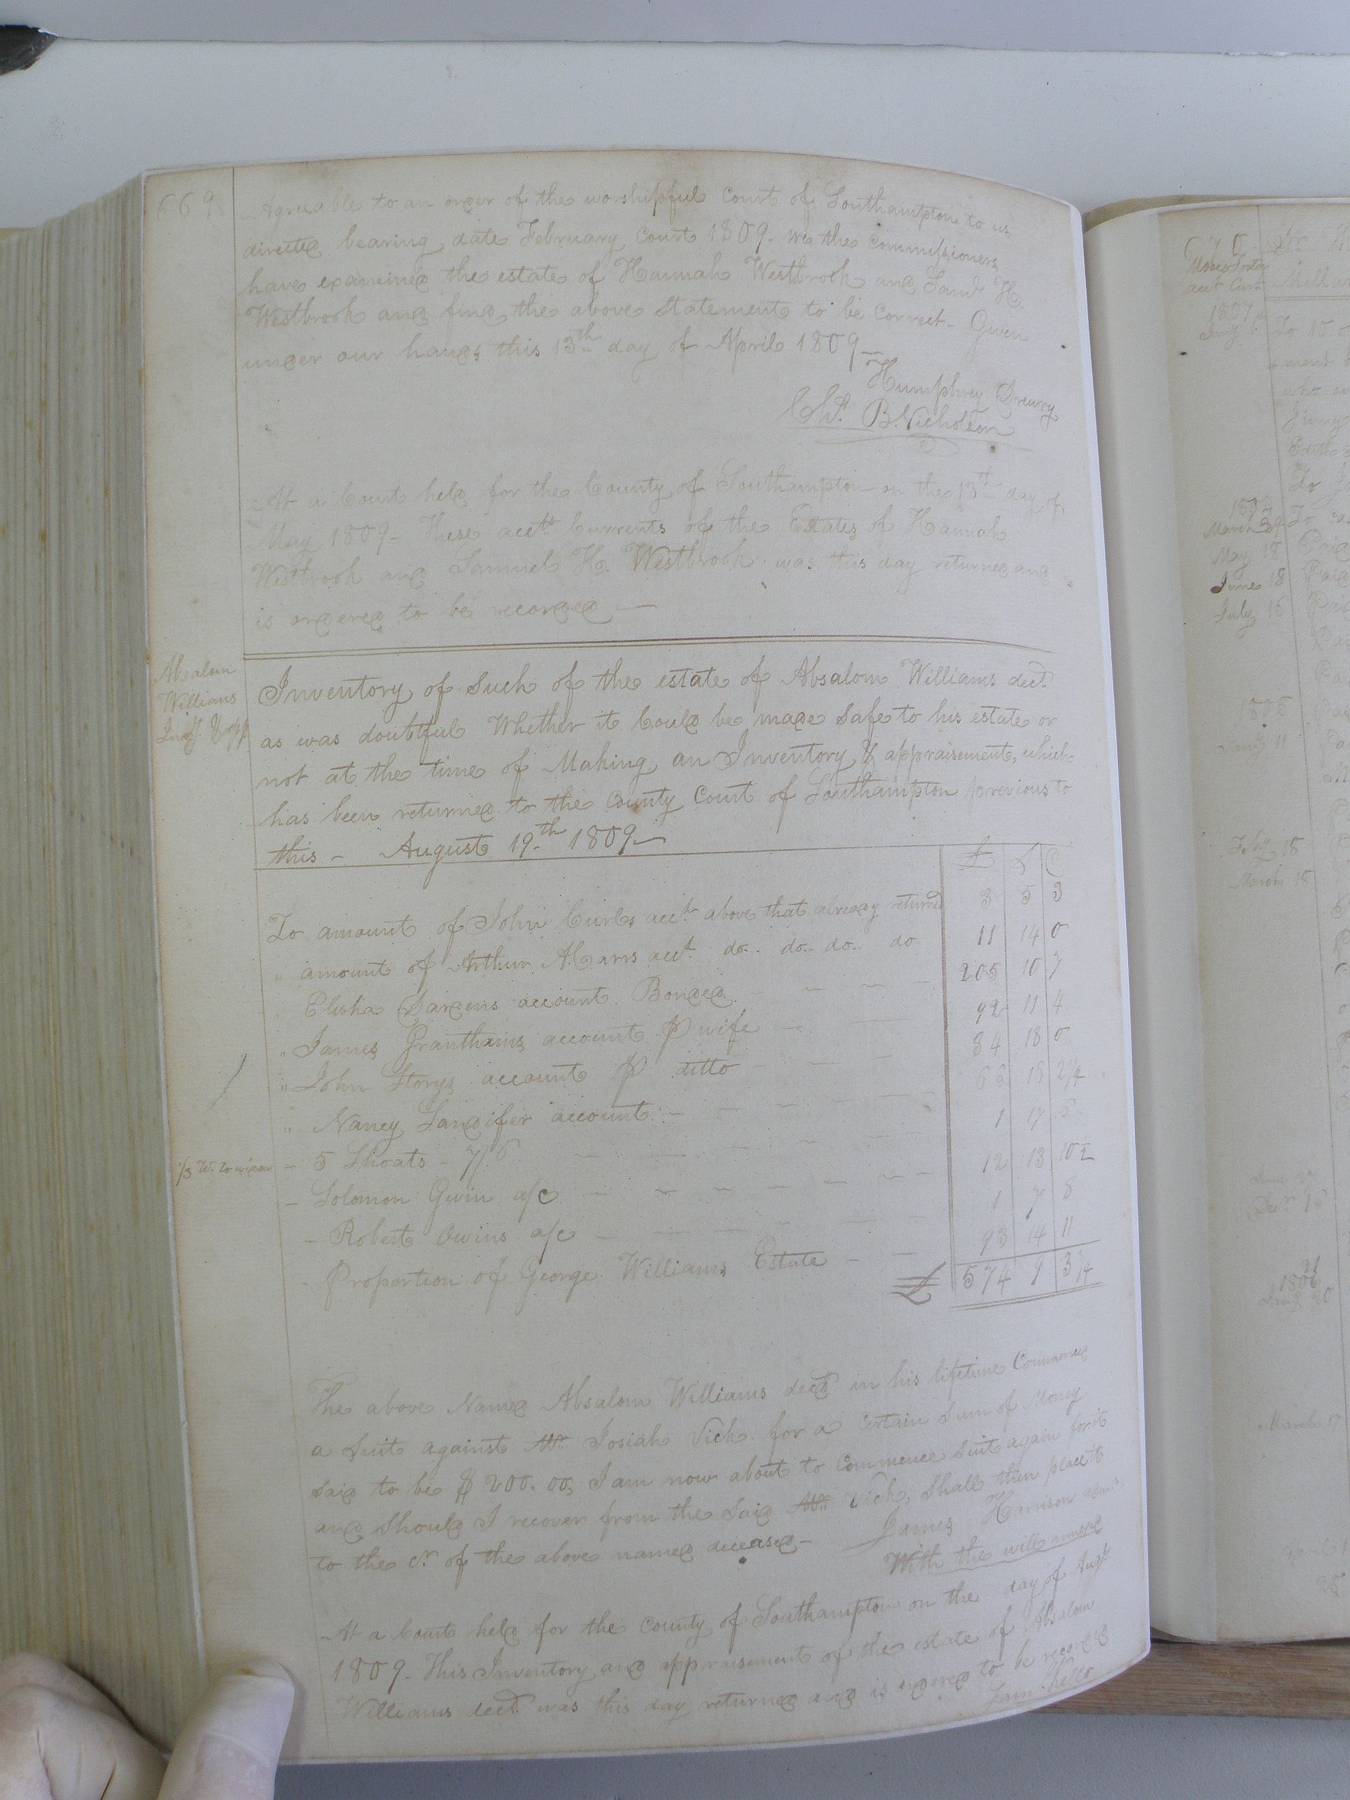 669
Agreeable to an order of the worshipful Court of Southampton to us
directed bearing date February Court 1809. we the Commissioners
have examined the estate of Hannah Westbrook and Saml H.
Westbrook and find the above Statement to be Correct - Given
under our hands this 13th day of April 1809 -
Humphrey Drewry
Chs. B. Nicholson
At a Court held for the County of Southampton on the 13th day of
May 1809 - These acctt Currents of the Estates of Hannah
Westbrook and Samuel H. Westbrook was this day returned and
is ordered to be recorded -
Absalom
Williams
Inv. & app
Inventory of Such of the estate of Absalom Williams decd.
as was doubtful Whether it Could be made Safe to his estate or
not at the time of Making an Inventory & appraisement, which
has been returned to the County Court of Southampton previous to
this - August 19th 1809 -
£ S
To amount of John Curls acct. above that already returned 3 5 3
" amount of Arthur Harris acct. do. do. do. do 11 14 0
Elisha Dardens account Bonded 205 10 7
" James Granthams account p wife 92 11 4
" John Storys account p ditto 84 18 0
" Nancy Sandifer account 1
- 5 Shoats - 7/6 1 17 6
- Solomon Gwin a/c 12 13 10½
- Robert Owins a/c 1 7
- Proportion of George Williams Estate 93 14 11
£ 574 9 3¼
The above Named Absalom Williams decd in his lifetime Commenced
a Suit against Josiah Vick for a Certain Sum of Mony
said to be $200.00, I am now about to Commence Suit again for it
and Should I recover from the said Vick, Shall then place it
to the cr. of the above named deceased -
James Harrison adm.
With the will annexed
At a Court held for the County of Southampton on the day of Augt
1809 - This Inventory and appraisement of the estate of Absalom
Williams decd. was this day returned and is ordered to be recorded
Sam. Kello
670
acct Curt
1807
March
May 18
June 18
July 16
Paid
Feby 18
March 18
March 17